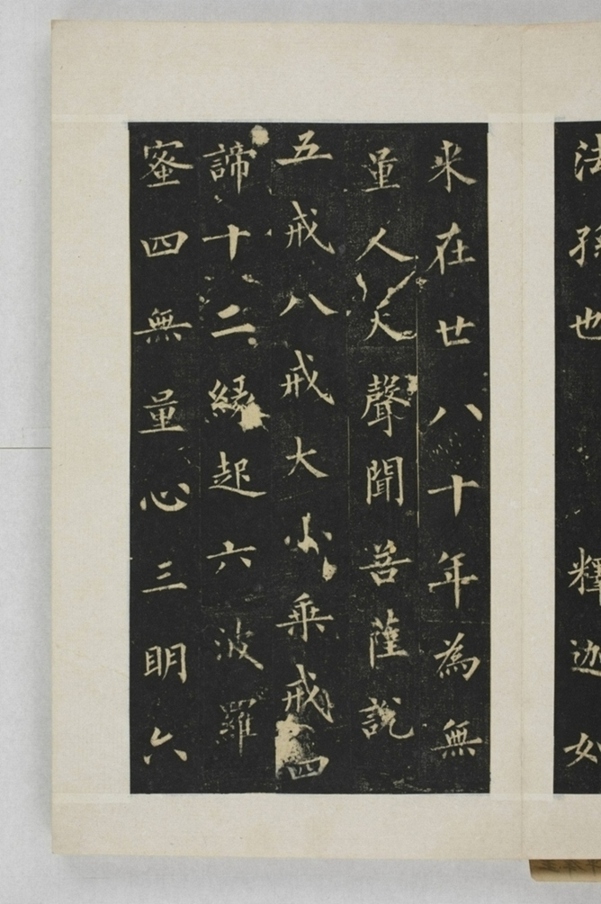 法孫也釋迦如
来在世八十年為無
量人天聲聞菩薩說
五戒八戒大小乗戒四
諦十二縁起六波羅
蜜四無量心三明六